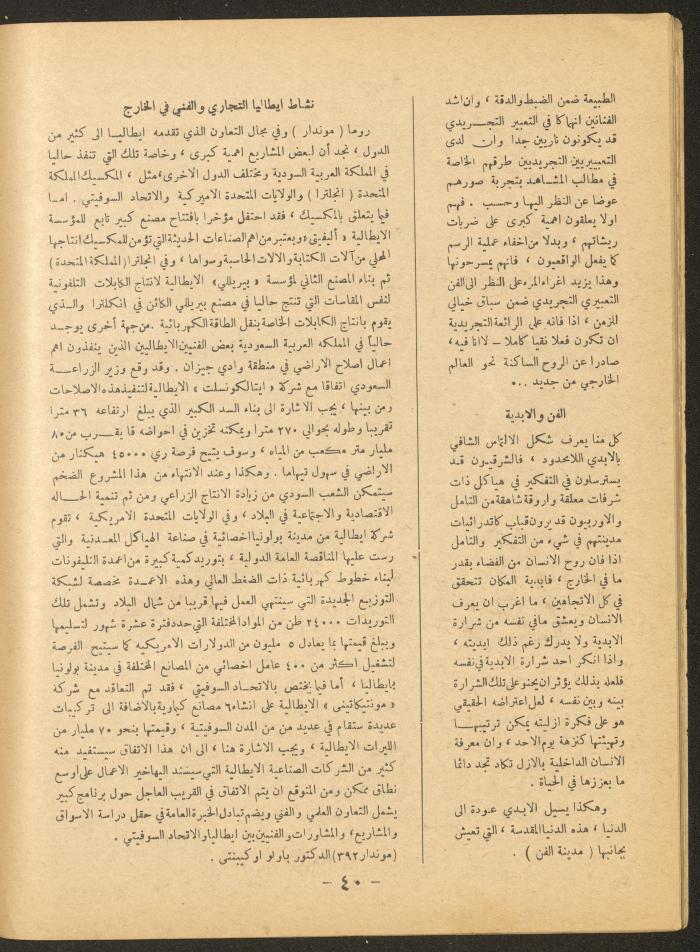 الطبيعة ضمن الضبط والدقة ، وان اشد
الفنانين انهماكا في التعبير التجــريدي
قد يكونون ناريين جدا وان لدى
التعبيريين التجريديين طرقهم الخاصة
في مطالب المشاهد بتجربة صورهم
عوضا عن النظر اليها وحسب . فهم
اولا يعلقون اهمية كبرى على ضربات
ريشاتهم ، وبدلا من اخفاء عملية الرسم
كما يفعل الواقعيون ، فانهم يمسرحونها
وهذا يزيد اغراء المرء على النظر الى الفن
التعبيري التجريدي ضمن سباق خيالي
للزمن ، اذا فانه على الرائعة التجريدية
ان تكون فعلا نقيا كاملا – لا انا فيه ،
صادرا عن الروح الساكنة نحو العالم
الخارجي من جديد ..
الفن والابدية
كل منا يعرف شكل الالتماس الشافي
بالابدي اللامحدود ، فالشرقيون قد
يسترسلون في التفكير في هياكل ذات
شرفات معلقة واروقة شاهقة من التامل
والاوربيون قديرون قباب كاتدرائيات
مدينتهم في شيء من التفكير والتامل
اذا فان روح الانسان من الفضاء بقدر
ما في الخارج ، فابدية المكان تتحقق
في كل الاتجاهين ، ما اغرب ان يعرف
الانسان ويعشق مافي نفسه من شرارة
الابدية ولا يدرك رغم ذلك ابديته ،
واذا انكر احد شرارة الابدية في نفسه
فلعله بذلك يؤثر ان يحنو على تلك الشرارة
بينه وبين نفسه ، لعل اعتراضه الحقيقي
هو على فكرة ازليته يمكن ترتيبهــا
وتهيئتها كنزهة يوم الاحد ، وان معرفة
الانسان الداخلية بالازل تكاد تجد دائما
ما يعززها في الحياة .
وهكذا يسيل الابدي عبودة الى
الدنيا ، هذه الدنيا المقدسة ، التي تعيش
بجانبها ( مدينة الفن ) .
نشاط ايطاليا التجاري والفني في الخارج
روما ( موندار ) وفي مجال التعاون الذي تقدمه ايطاليــا الى كثير من
الدول ، نجد أن لبعض المشاريع اهمية كبرى ، وخاصة تلك التي تنفذ حاليا
في المملكة العربية السعودية ومختلف الدول الاخرى ، مثل ، المكسيك المملكة
المتحدة ( انجلترا ) والولايات المتحدة الاميركية والاتحاد السوفيتي . امــا
فيما يتعلق بالمكسيك ، فقد احتفل مؤخرا بافتتاح مصنع كبير تابع للمؤسسة
الايطالية « أليفيتي » ويعتبر من اهم الصناعات الحديثة التي تؤمن للمكسيك انتاجها
المحلي من آلات الكتابة والالات الحاسبة وسواها ، وفي انجلترا ( المملكة المتحدة )
ثم بناء المصنع الثاني لمؤسسة « بيريللي » الايطالية لانتاج الكابلات التلفونية
لنفس المقاسات التي تنتج حاليا في مصنع بيريللي الكائن في انكلترا والــذي
يقوم بانتاج الكابلات الخاصة بنقل الطاقة الكهربائية . من جهة أخرى يوجــد
حالياً في المملكه العربية السعودية بعض الفنيين الايطاليين الذين ينفذون اهم
اعمال اصلاح الاراضي في منطقة وادي جيزان . وقد وقع وزير الزراعــة
السعودي اتفاقا مع شركة « ايتالكونسلت » الايطالية لتنفيذ هذه الاصلاحات
ومن بينها ، يجب الاشارة الى بناء السد الكبير الذي يبلغ ارتفاعه ٣٦ مترا
تقريبا وطوله بحوالي ٢٧٠ مترا ويمكنه تخزين في احواضه قا يقــرب من ٨٠
مليار متر مكعب من المياه ، وسوف يتيح فرصة ري ٤٥٠٠٠ هيكتار من
الاراضي في سهول تيهاما . وهكذا وعند الانتهاء من هذا المشروع الضخم
سيتمكن الشعب السودي من زيادة الانتاج الزراعي ومن ثم تنمية الحــاله
الاقتصادية والاجتماعية في البلاد ، وفي الولايات المتحدة الامريكية ، تقوم
شركة ايطالية من مدينة بولونيا اخصائية في صناعة الهياكل المعــدنية والتي
رست عليها المناقصة العامة الدولية ، بتوريد كمية كبيرة من اعمدة التليفونات
لبناء خطوط كهربائية ذات الضغط العالي وهذه الاعمــدة مخصصة لشبكة
التوزيع الجديدة التي سينتهي العمل فيها قريبا من شمال البلاد وتشمل تلك
التوريدات ٢٤٠٠٠ طن من المواد المختلفة التي حدد فترة عشرة شهور لتسليمها
ويبلغ قيمتها بما يعادل ٥ مليون من الدولارات الامريكيه كما سيتيح الفرصة
لتشغيل اكثر من ٤٠٠ عامل اخصائي من المصانع المختلفة في مدينة بولونيا
بايطاليا ، أما فيما يختص بالاتحاد السوفيتي ، فقد تم التعاقد مع شركة
« مونتيكاتيني » الايطالية على انشاء ٦ مصانع كيماوية بالاضافة الى تركيبات
عديدة ستقام في عديد من من المدن السوفيتية ، وقيمتها بنحو ٧٠ مليار من
الليرات الايطالية ، ويجب الاشارة هنا ، الى ان هذا الاتفاق سيستفيد منه
كثير من الشركات الصناعية الايطالية التي سيسند اليها خير الاعمال على اوسع
نطاق ممكن ومن المتوقع ان يتم الاتفاق في القريب العاجل حول برنامج كبير
يشمل التعاون العلمي والفني ويضم تبادل الخبرة العامة في حقل دراسة الاسواق
والمشاريع ، والمشاورات والفنيين بين ايطاليا والاتحاد السوفيتي .
( موندار ٣٩٢ ) الدكتور باولو اوكيبنتي .
– ٤٠ –